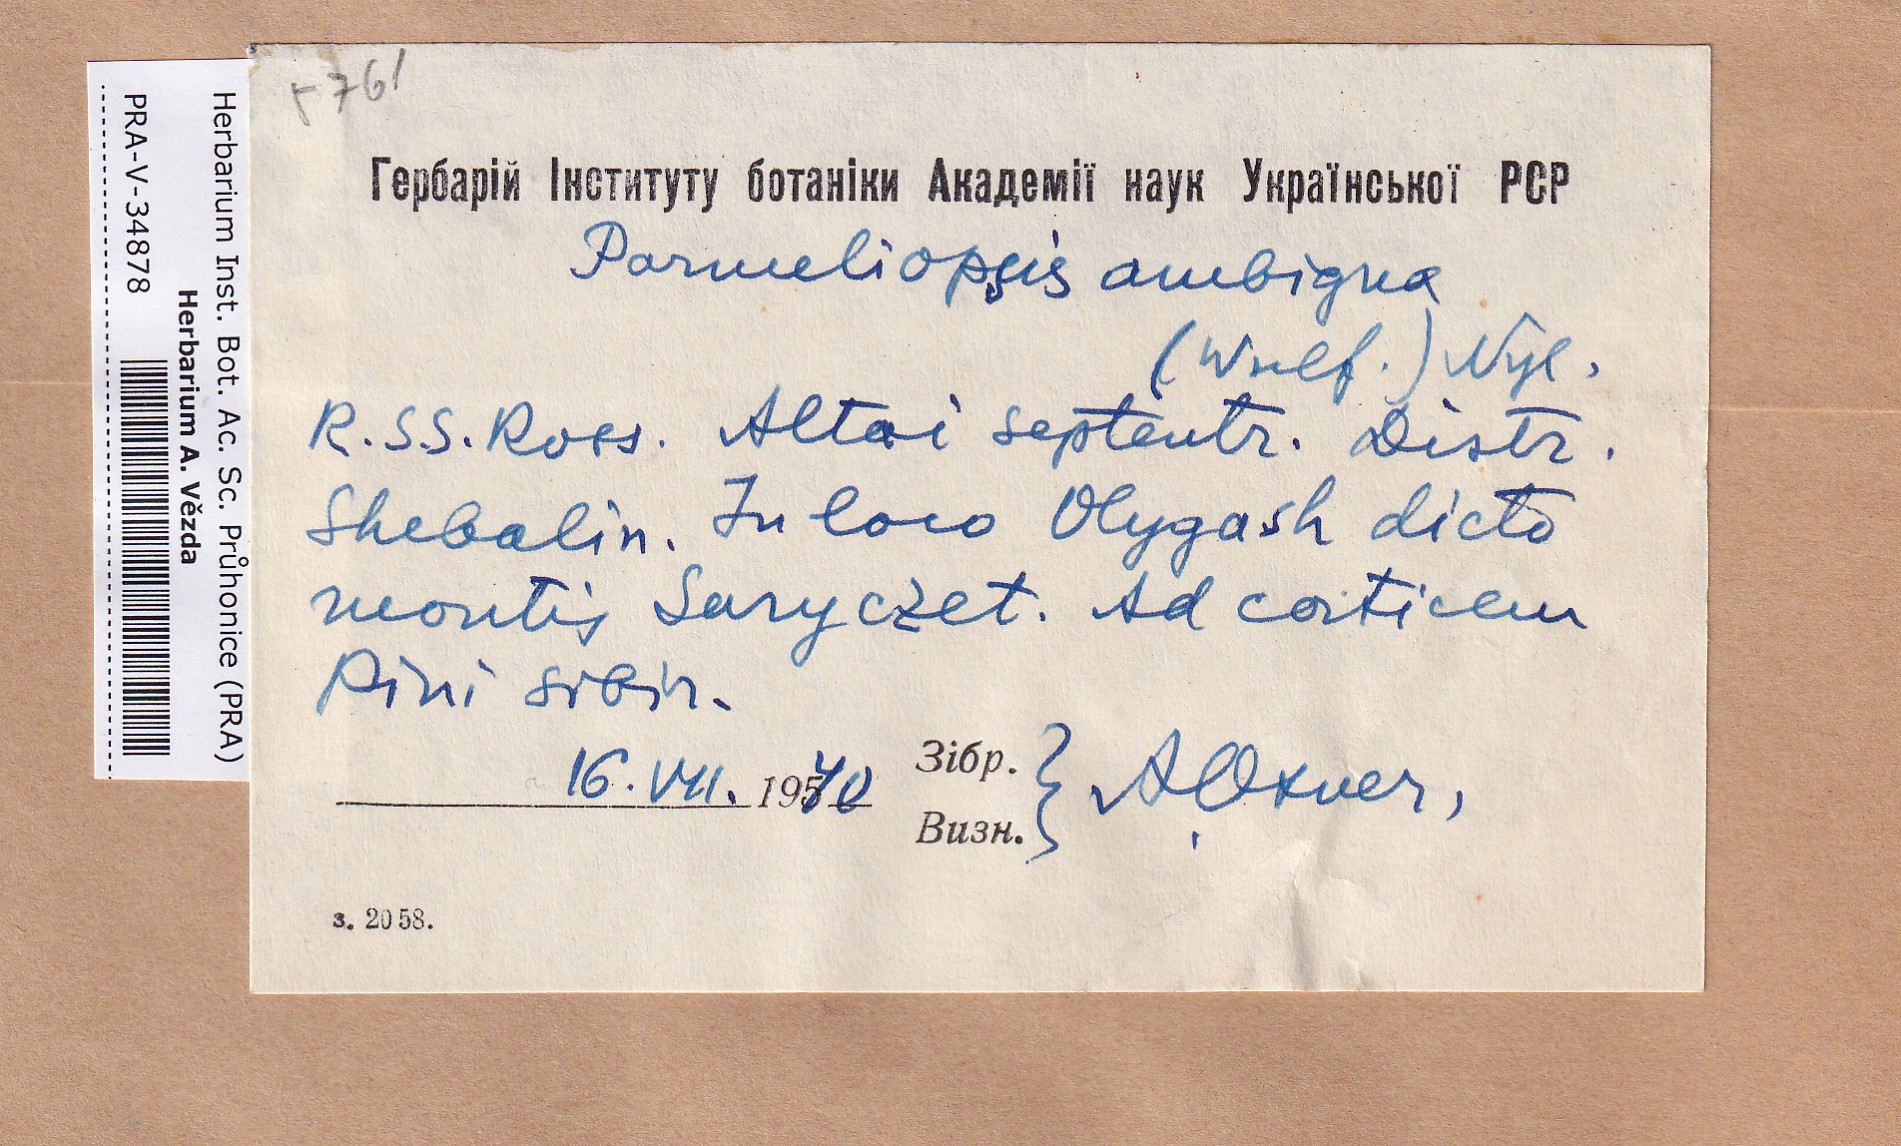 5761
Гербарій Інституту ботаніки Академії наук Української РСР
Parmeliopsis ambigua
(Wulf.) Nyl.
R.S.S. Ross. Altai septentr. Distr.
Shebalin. In loco Ulygash dicto
montis Saryczet. Ad corticem
Pini sibir.
16.VII. 1970
Зібр.
Визн.
A. Oxner,
з. 2058.
Herbarium Inst. Bot. Ac. Sc. Průhonice (PRA)
Herbarium A. Vězda
PRA-V-34878